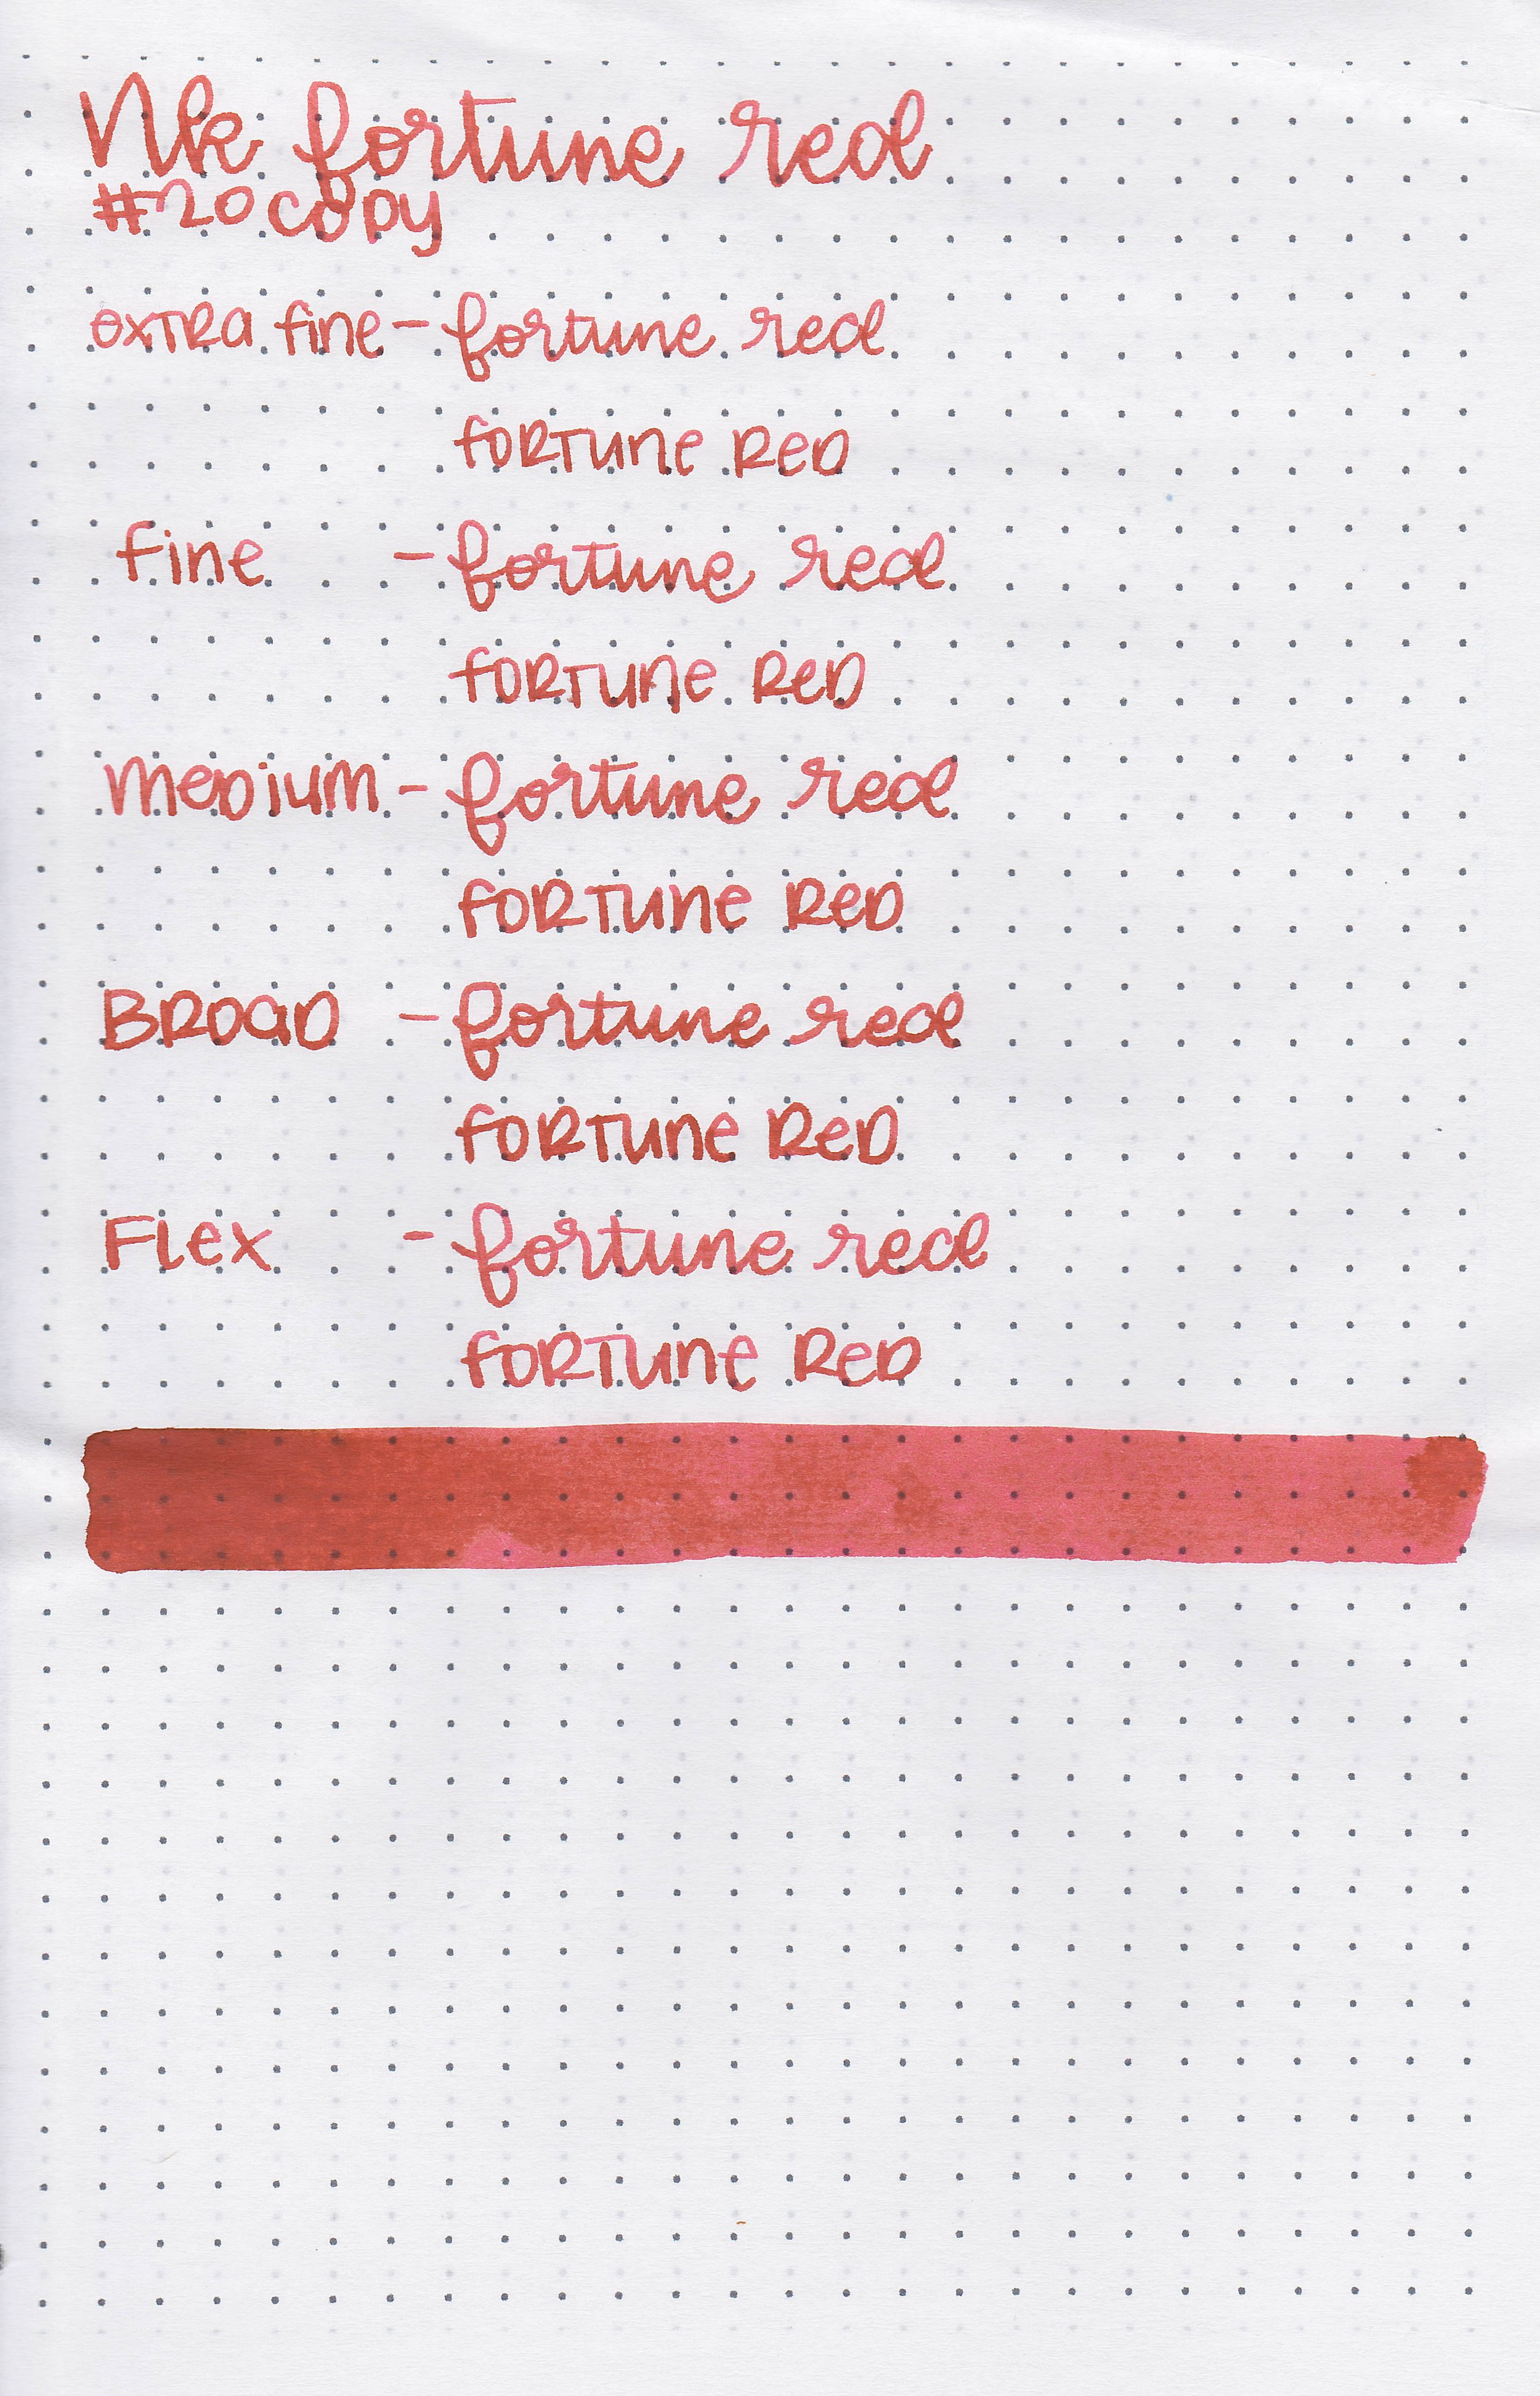 Nk fortune red
#20 copy
extra fine - fortune red
fortune red
fine - fortune red
fortune red
medium - fortune red
fortune red
Broad - fortune red
fortune red
Flex - fortune red
fortune red